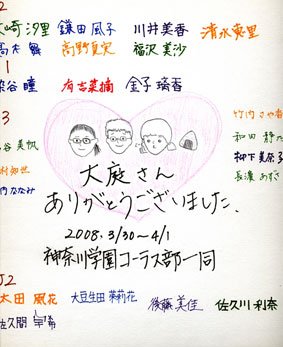 2
崎 汐里 鎌田 風子 川井 美香 清水 東里
高木 舞 高野 夏実 福沢 美沙
1
谷 瞳 有吉 菜摘 金子 瑞香
3
竹内 さや
谷 美帆
和田 静
柳下 美奈
内 ななみ
長濃 あずさ
大庭さん
ありがとうございました。
2008. 3/30～4/1
神奈川学園コーラス部一同
J2
太田 風花 大豆生田 茉莉花 後藤 美佳 佐久川 利奈
佐久間